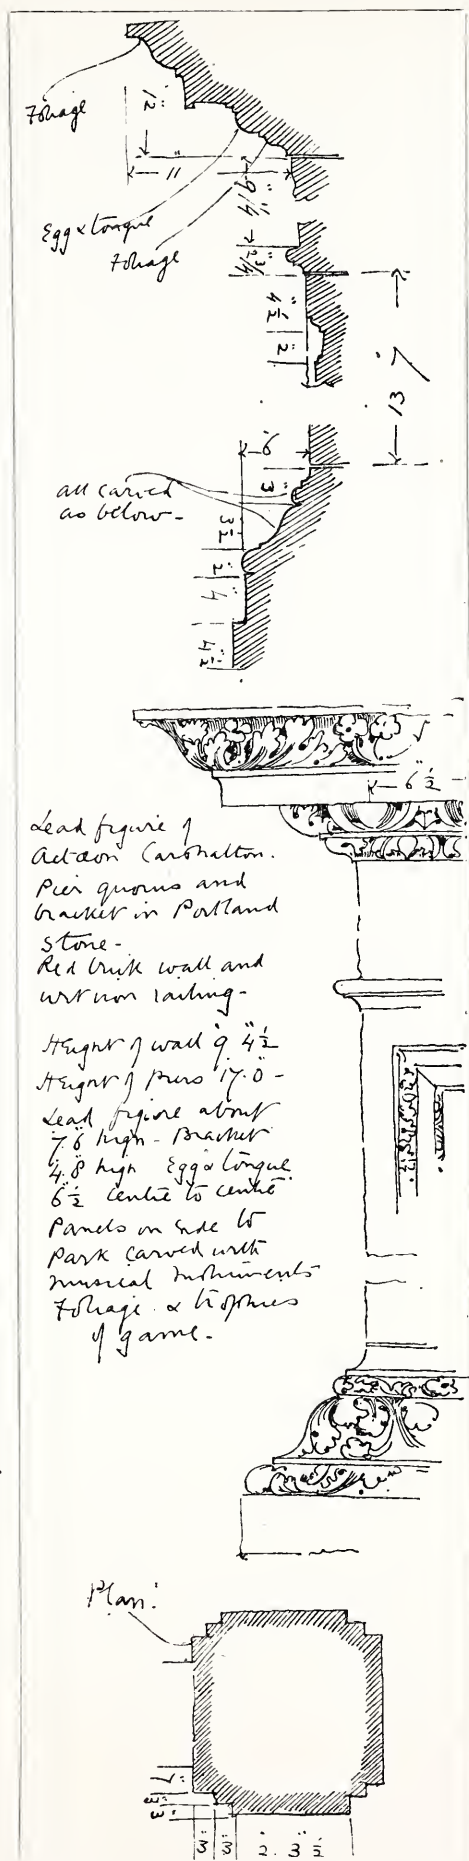 Foliage
12"
11"
9 1/4"
Egg & tongue
Foliage
2 3/4"
4 1/2"
2"
13' 7
6
3"
all carved
as below -
3 1/2
2"
4"
4 1/2"
6 1/2"
Lead figure of
Actæon Carshalton.
Pier quoins and
bracket in Portland
stone -
Red brick wall and
wrt iron railing -
Height of wall 9' 4 1/2"
Height of piers 17'.0" -
Lead figure about
7'.6" high - Bracket
4'.8" high Egg & tongue
6 1/2 centre to centre
Panels on side to
Park carved with
musical instruments
Foliage & trophies
of game -
Plan:
7"
3"
3"
3" 3" 2'. 3 1/2"